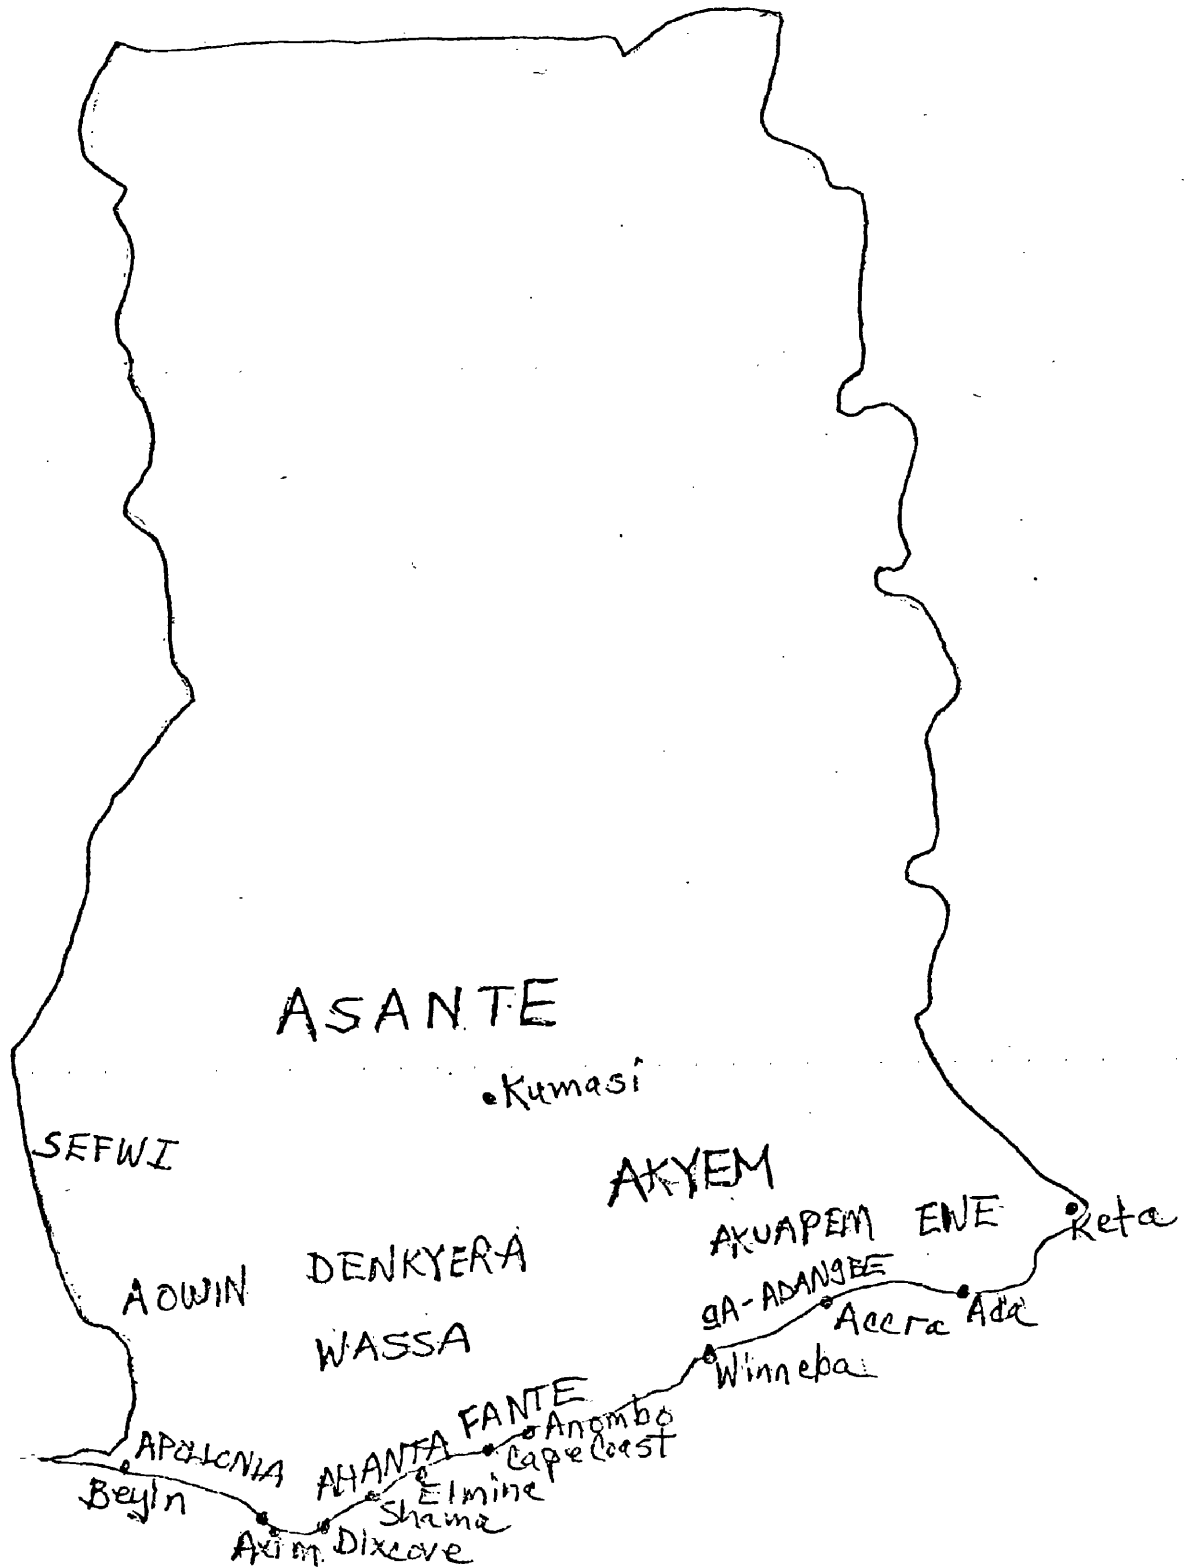 ASANTE
Kumasi
SEFWI
AKYEM
AKUAPEM
EWE
Keta
DENKYERA
AOWIN
gA-ADANgBE
Accra
Ada
WASSA
Winneba
FANTE
Anombo
Cape Coast
APOLLONIA
AHANTA
Elmina
Beyin
Shama
Axim
Dixcove